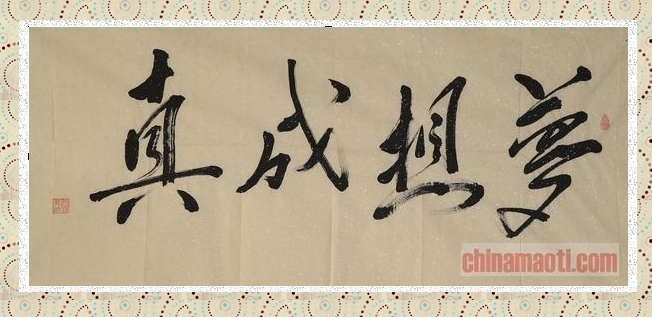 夢想成真
chinamaoti.com